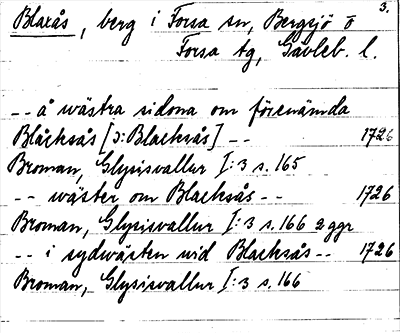 3.
Blaxås, berg i Forsa sn, Bergsjö o
Forsa tg, Gävleb. l.
-- å wästra sidona om förenämda
Blåcksås [ɔ: Blacksås] -- 1726
Broman, Glysisvallur I:3 s. 165
-- wäster om Blacksås -- 1726
Broman, Glysisvallur I:3 s. 166 2 ggr
-- i sydwästen wid Blacksås -- 1726
Broman, Glysisvallur I:3 s. 166